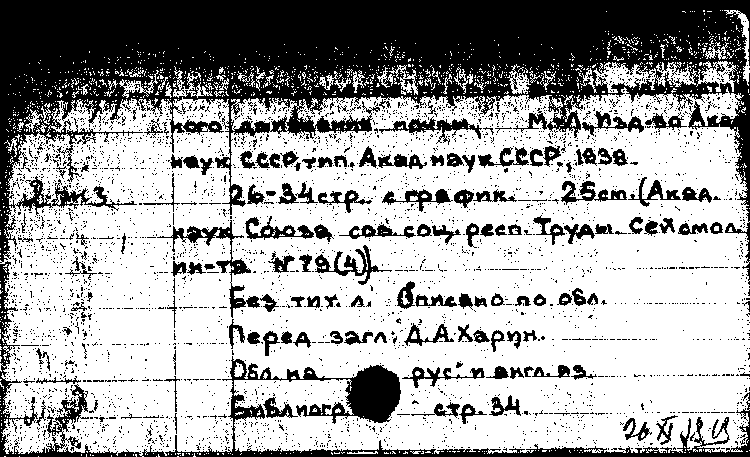 Определение первой амплитуды истин
ного движения почвы, М.-Л., Изд-во Акад.
наук СССР, тип. Акад. наук СССР, 1938.
2 экз 26-34 стр. с график. 25 cm. (Акад.
наук Союза сов. соц. респ. Труды. Сейсмол.
ин-та № 79(4)).
Без тит. л. Описано по обл.
Перед загл.: Д.А. Харин.
Обл. на рус. и англ. яз.
Библиогр. стр. 34.